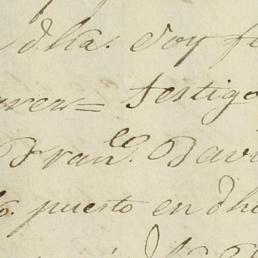 dha. doy fe
= testigo
Franco. Davi
puesto en dh